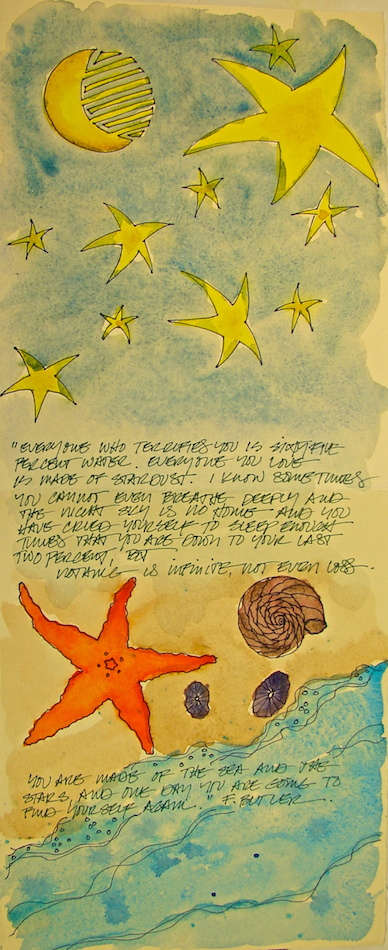 "EVERYONE WHO TERRIFIES YOU IS SIXTY-FIVE
PERCENT WATER. EVERYONE YOU LOVE
IS MADE OF STARDUST. I KNOW SOMETIMES
YOU CANNOT EVEN BREATHE DEEPLY AND
THE NIGHT SKY IS NO HOME AND YOU
HAVE CRIED YOURSELF TO SLEEP ENOUGH
TIMES THAT YOU ARE DOWN TO YOUR LAST
TWO PERCENT, BUT
NOTHING IS INFINITE, NOT EVEN LOSS.
YOU ARE MADE OF THE SEA AND THE
STARS, AND ONE DAY YOU ARE GOING TO
FIND YOURSELF AGAIN." F. BUTLER